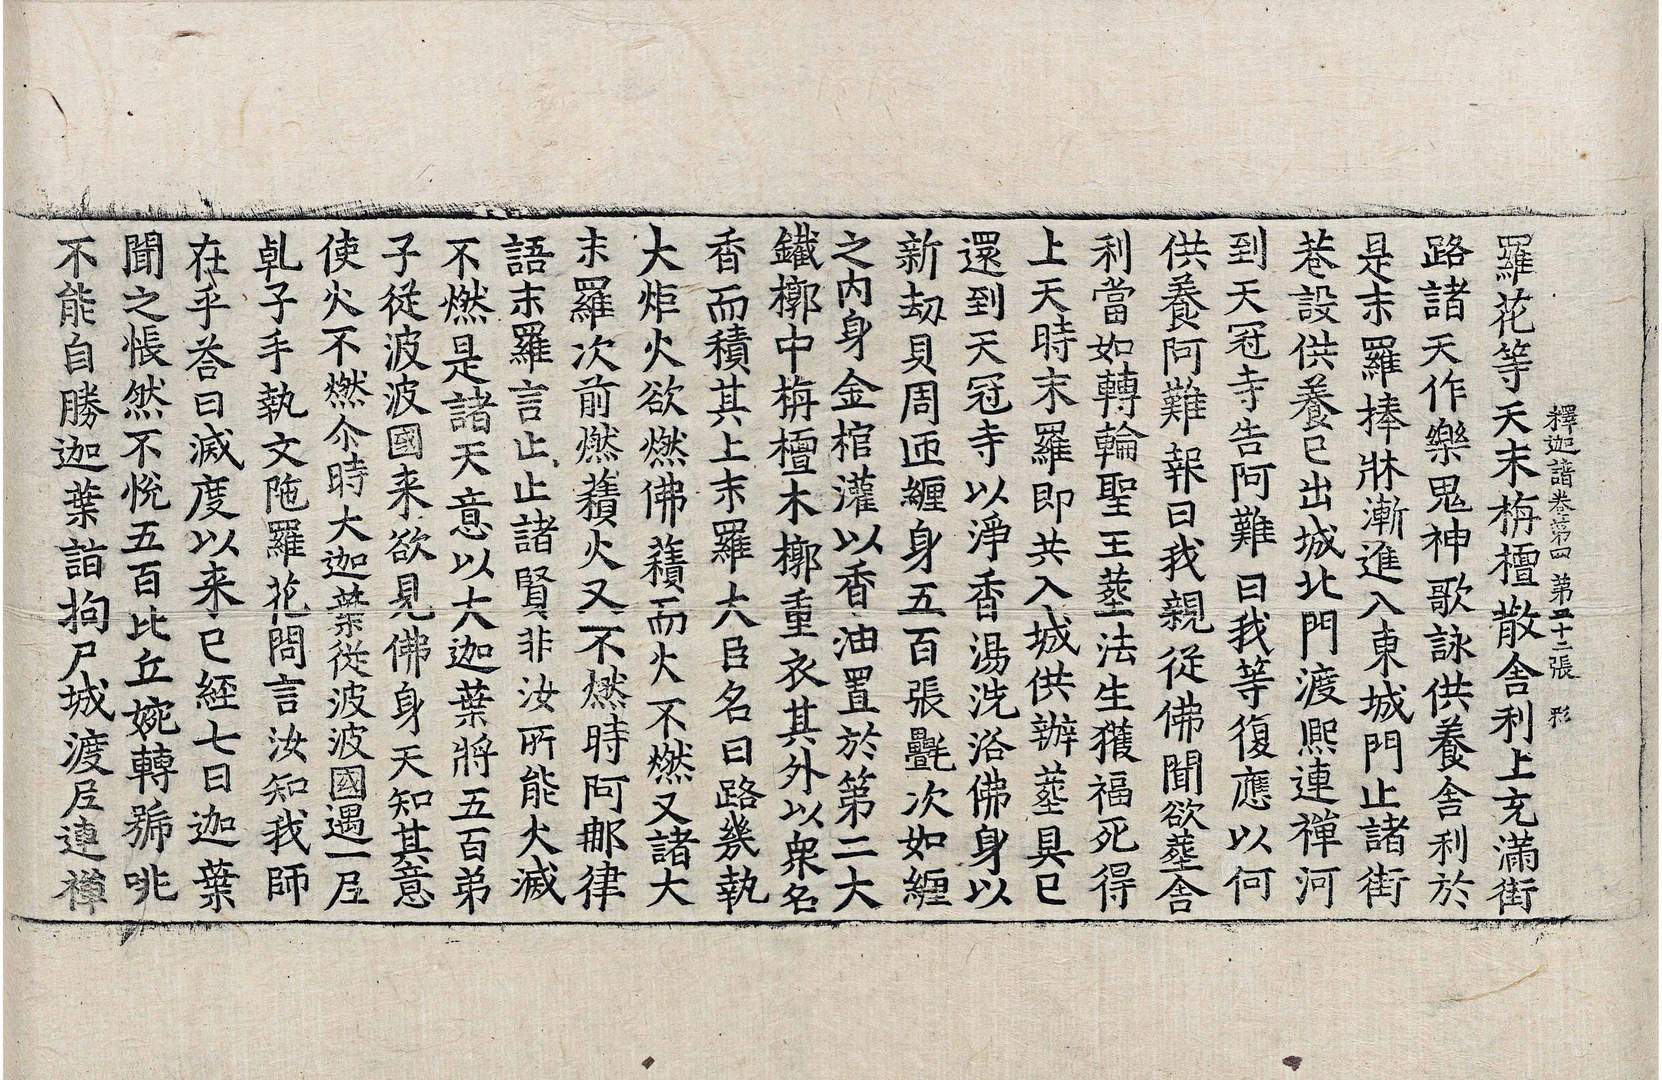 釋迦譜卷第四 第五十二張 形
羅花等天末栴檀散舍利上充滿街
路諸天作樂鬼神歌詠供養舍利於
是末羅捧牀漸進入東城門止諸街
巷設供養已出城北門渡熙連禪河
到天冠寺告阿難曰我等復應以何
供養阿難報曰我親從佛聞欲葬舍
利當如轉輪聖王葬法生獲福死得
上天時末羅即共入城供辦葬具已
還到天冠寺以淨香湯洗浴佛身以
新劫貝周匝纏身五百張疊次如纏
之內身金棺灌以香油置於第二大
鐵槨中栴檀木槨重衣其外以衆名
香而積其上末羅大臣名曰路夷執
大炬火欲燃佛𧂐而火不燃又諸大
末羅次前燃𧂐火又不燃時阿那律
語末羅言止止諸賢非汝所能火滅
不燃是諸天意以大迦葉將五百弟
子從波波國来欲見佛身天知其意
使火不燃尒時大迦葉從波波國遇一尼
乹子手執文陁羅花問言汝知我師
在乎荅曰滅度以来已經七日迦葉
聞之悵然不悅五百比丘婉轉號咷
不能自勝迦葉詣拘尸城渡尼連禪